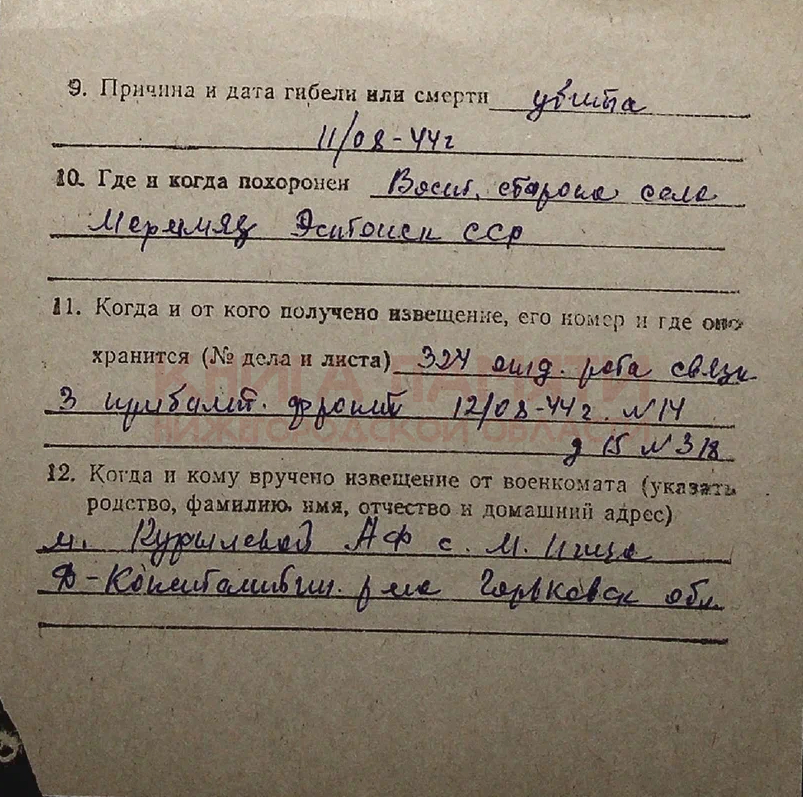 9. Причина и дата гибели или смерти убита
11/08-44г
10. Где и когда похоронен Вост. сторона села
Меремяэ Эстонск ССР
11. Когда и от кого получено извещение, его номер и где оно
хранится (№ дела и листа) 324 отд. рота связи
КНИГА ПАМЯТИ
3 прибалт. фронт 12/08-44г. N14
НИЖЕГОРОДСКОЙ ОБЛАСТИ
д 15 N 318
12. Когда и кому вручено извещение от военкомата (указать
родство, фамилию, имя, отчество и домашний адрес)
м. Курылевой АФ с. М. Пица
Д-Константин. р-на Горьковск обл.